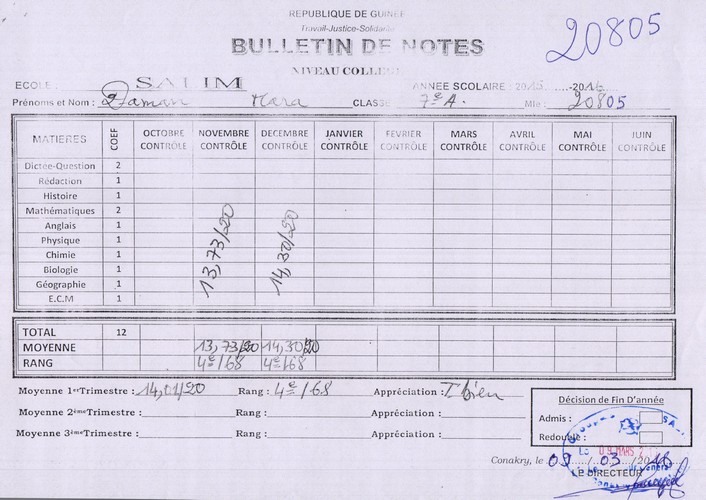 REPUBLIQUE DE GUINEE
Travail-Justice-Solidarité
20805
BULLETIN DE NOTES
NIVEAU COLLEGE
ECOLE : SALIM ANNEE SCOLAIRE : 2015......-2016
Prénoms et Nom : Daman Mara CLASSE 7e A. Mle : 20805
MATIERES COEF OCTOBRE CONTRÔLE NOVEMBRE CONTRÔLE DECEMBRE CONTRÔLE JANVIER CONTRÔLE FEVRIER CONTRÔLE MARS CONTRÔLE AVRIL CONTRÔLE MAI CONTRÔLE JUIN CONTRÔLE
Dictée-Question 2
Rédaction 1
Histoire 1
Mathématiques 2
Anglais 1
Physique 1
Chimie 1
Biologie 1
Géographie 1
E.C.M 1
13,73/20 14,30/20
TOTAL 12
MOYENNE 13,73/20 14,30/20
RANG 4e/68 4e/68
Moyenne 1er Trimestre : 14,01/20 Rang : 4e/68 Appréciation : T bien
Moyenne 2ème Trimestre : Rang : Appréciation :
Moyenne 3ème Trimestre : Rang : Appréciation :
Décision de Fin D'année
Admis :
Redouble :
09 MARS
Conakry, le 09/03/2016
Le DIRECTEUR